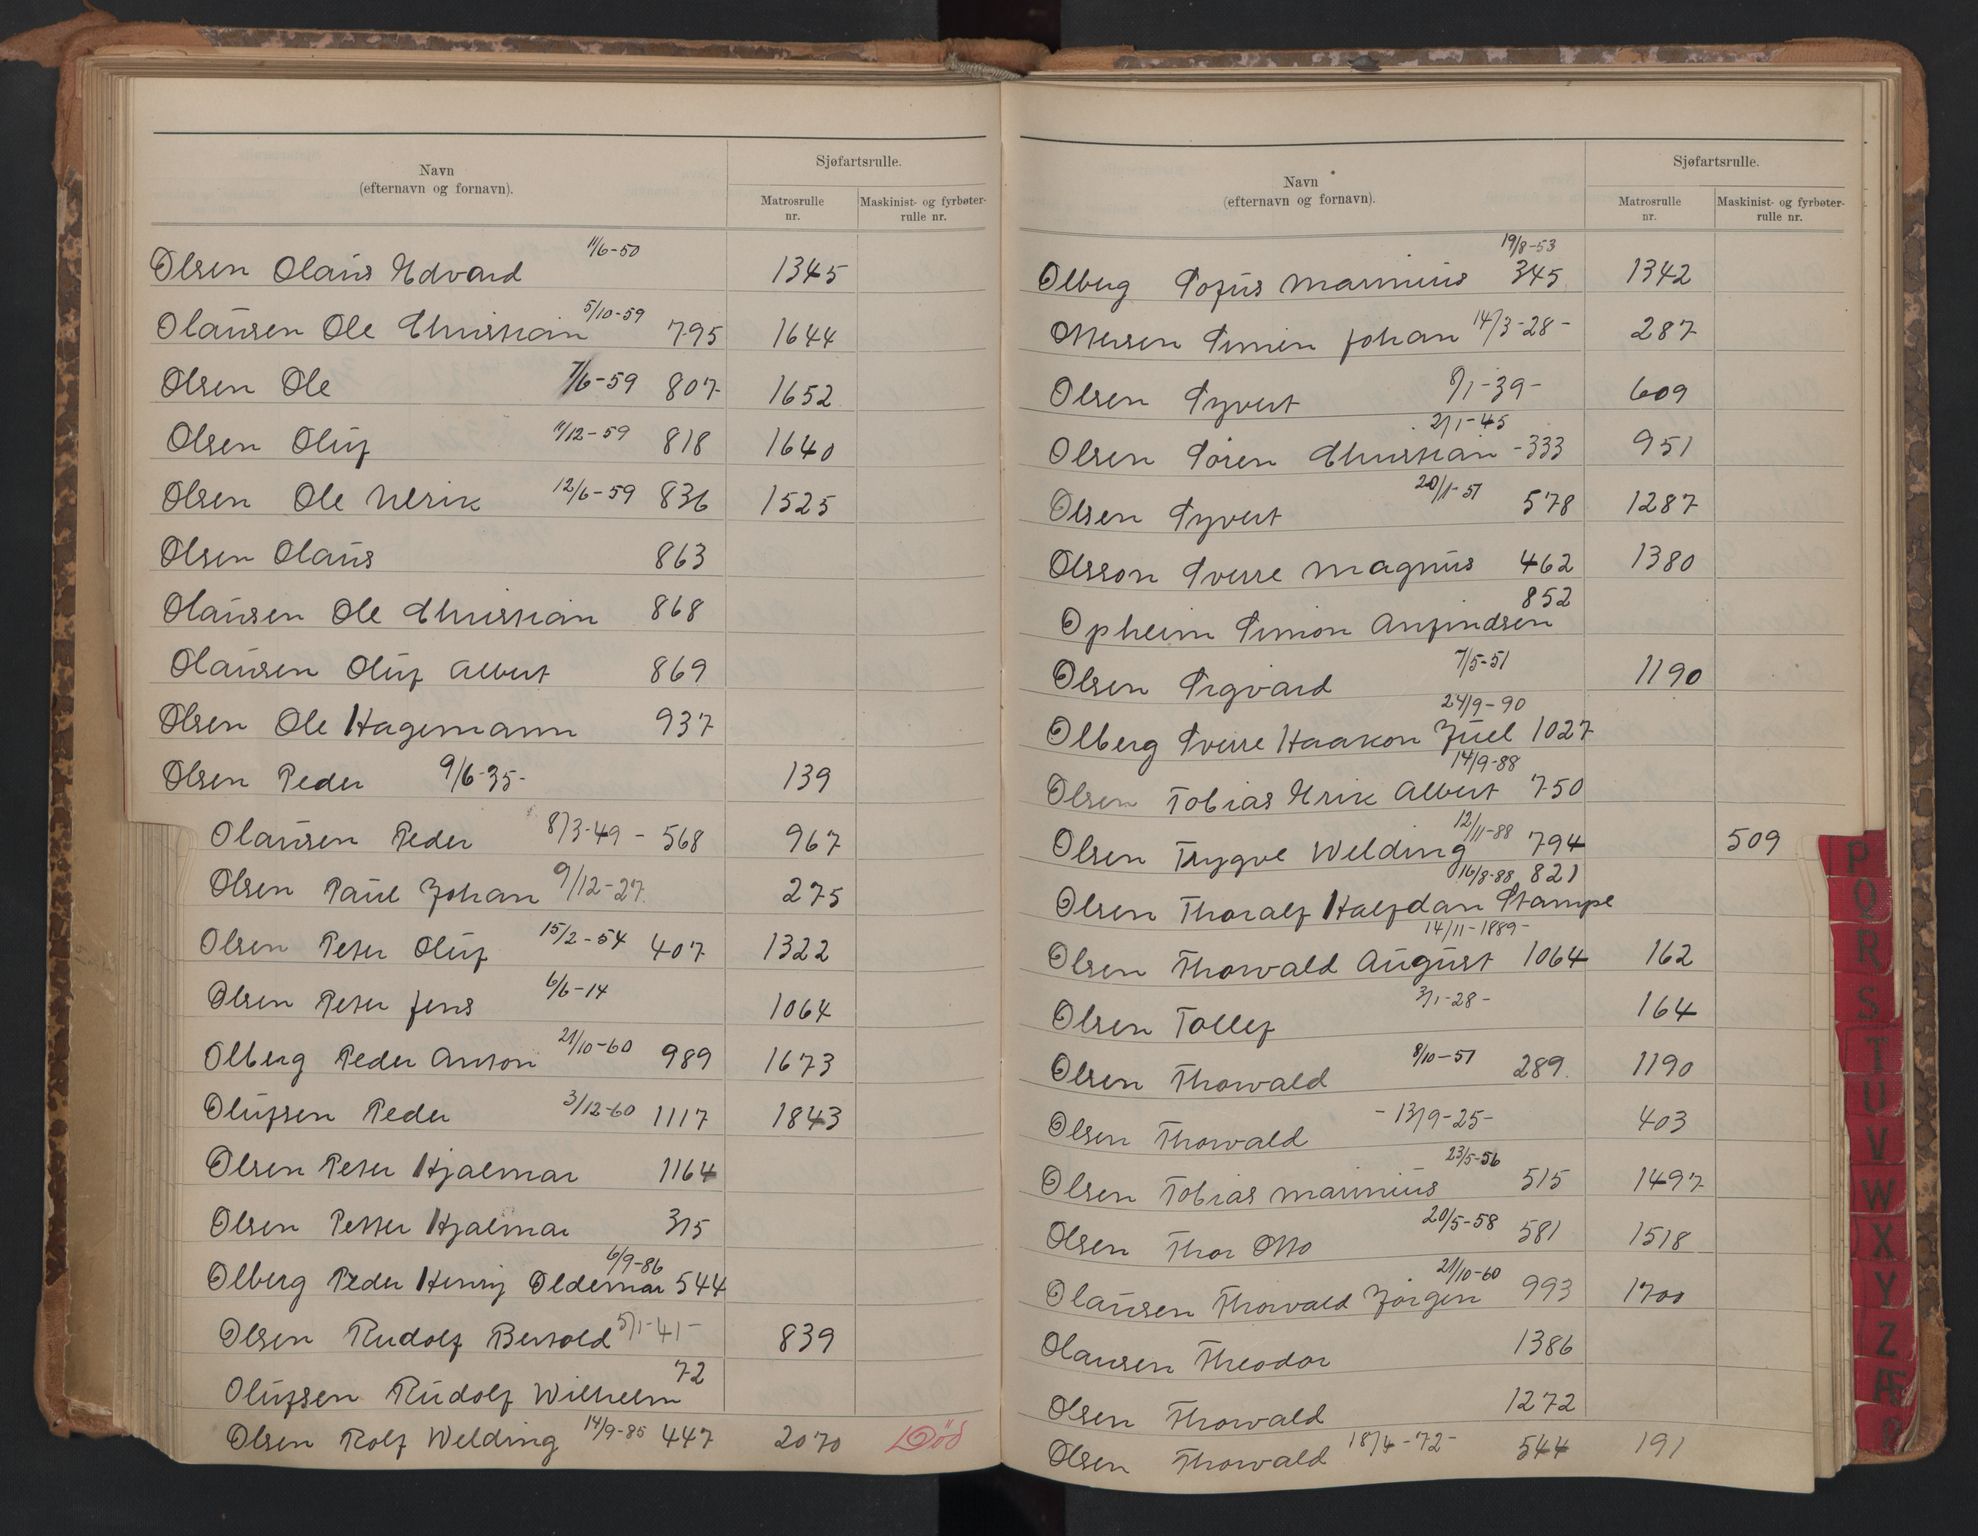 Navn
(efternavn og fornavn).
Sjøfartsrulle.
Matrosrulle nr.
Maskinist- og fyrbøter-rulle nr.
Olsen Olaus Edvard 11/6-50 1345
Olausen Ole Christian 5/10-59 795 1644
Olsen Ole 7/6-59 807 1652
Olsen Oluf 11/12-59 818 1640
Olsen Ole Ulrik 12/6-59 836 1525
Olsen Olaus 863
Olausen Ole Christian 868
Olausen Oluf Albert 869
Olsen Ole Hagemann 937
Olsen Peder 9/6-35- 139
Olausen Peder 8/3-49- 568 967
Olsen Paul Johan 9/12-27. 275
Olsen Peter Oluf 15/2-54 407 1322
Olsen Peter Jens 6/6-14 1064
Olberg Peder Anton 21/10-60 989 1673
Olufsen Peder 3/12-60 1117 1843
Olsen Peter Hjalmar 1164
Olsen Petter Hjalmar 315
Olberg Peder Henry Oldemar 6/9-86 544
Olsen Rudolf Bertold 5/1-41- 839
Olufsen Rudolf Wilhelm 72
Olsen Rolf Welding 14/9-85 447 2070 Död
Navn
(efternavn og fornavn).
Sjøfartsrulle.
Matrosrulle nr.
Maskinist- og fyrbøter-rulle nr.
Olberg Sofus Marinius 19/8-53 345 1342
Ottersen Simen Johan 14/3-28- 287
Olsen Syvert 8/1-39- 609
Olsen Sören Christian 2/1-45 -333 951
Olsen Syvert 20/1-51 578 1287
Olsson Sverre Magnus 462 1380
Opheim Simon Anfindsen 852
Olsen Sigvard 7/5-51 1190
Olberg Sverre Haakon Juel 24/9-90 1027
Olsen Tobias Erik Albert 14/9-88 750
Olsen Trygve Welding 12/11-88 794 509
Olsen Thoralf Halfdan Stampe 16/8-88 821
Olsen Thorvald August 14/11-1889- 1064 162
Olsen Tollef 3/1-28- 164
Olsen Thorvald 8/10-51 289. 1190
Olsen Thorvald -13/9-25- 403
Olsen Tobias Marinius 23/5-56 515 1497
Olsen Thor Otto 20/5-58 581 1518
Olausen Thorvald Jörgen 21/10-60 993 1700
Olausen Theodor 1386
Olsen Thorvald 1272
Olsen Thorvald 18/4-72- 544 191
P
Q
R
S
T
U
V
W
X
Y
Z
Æ